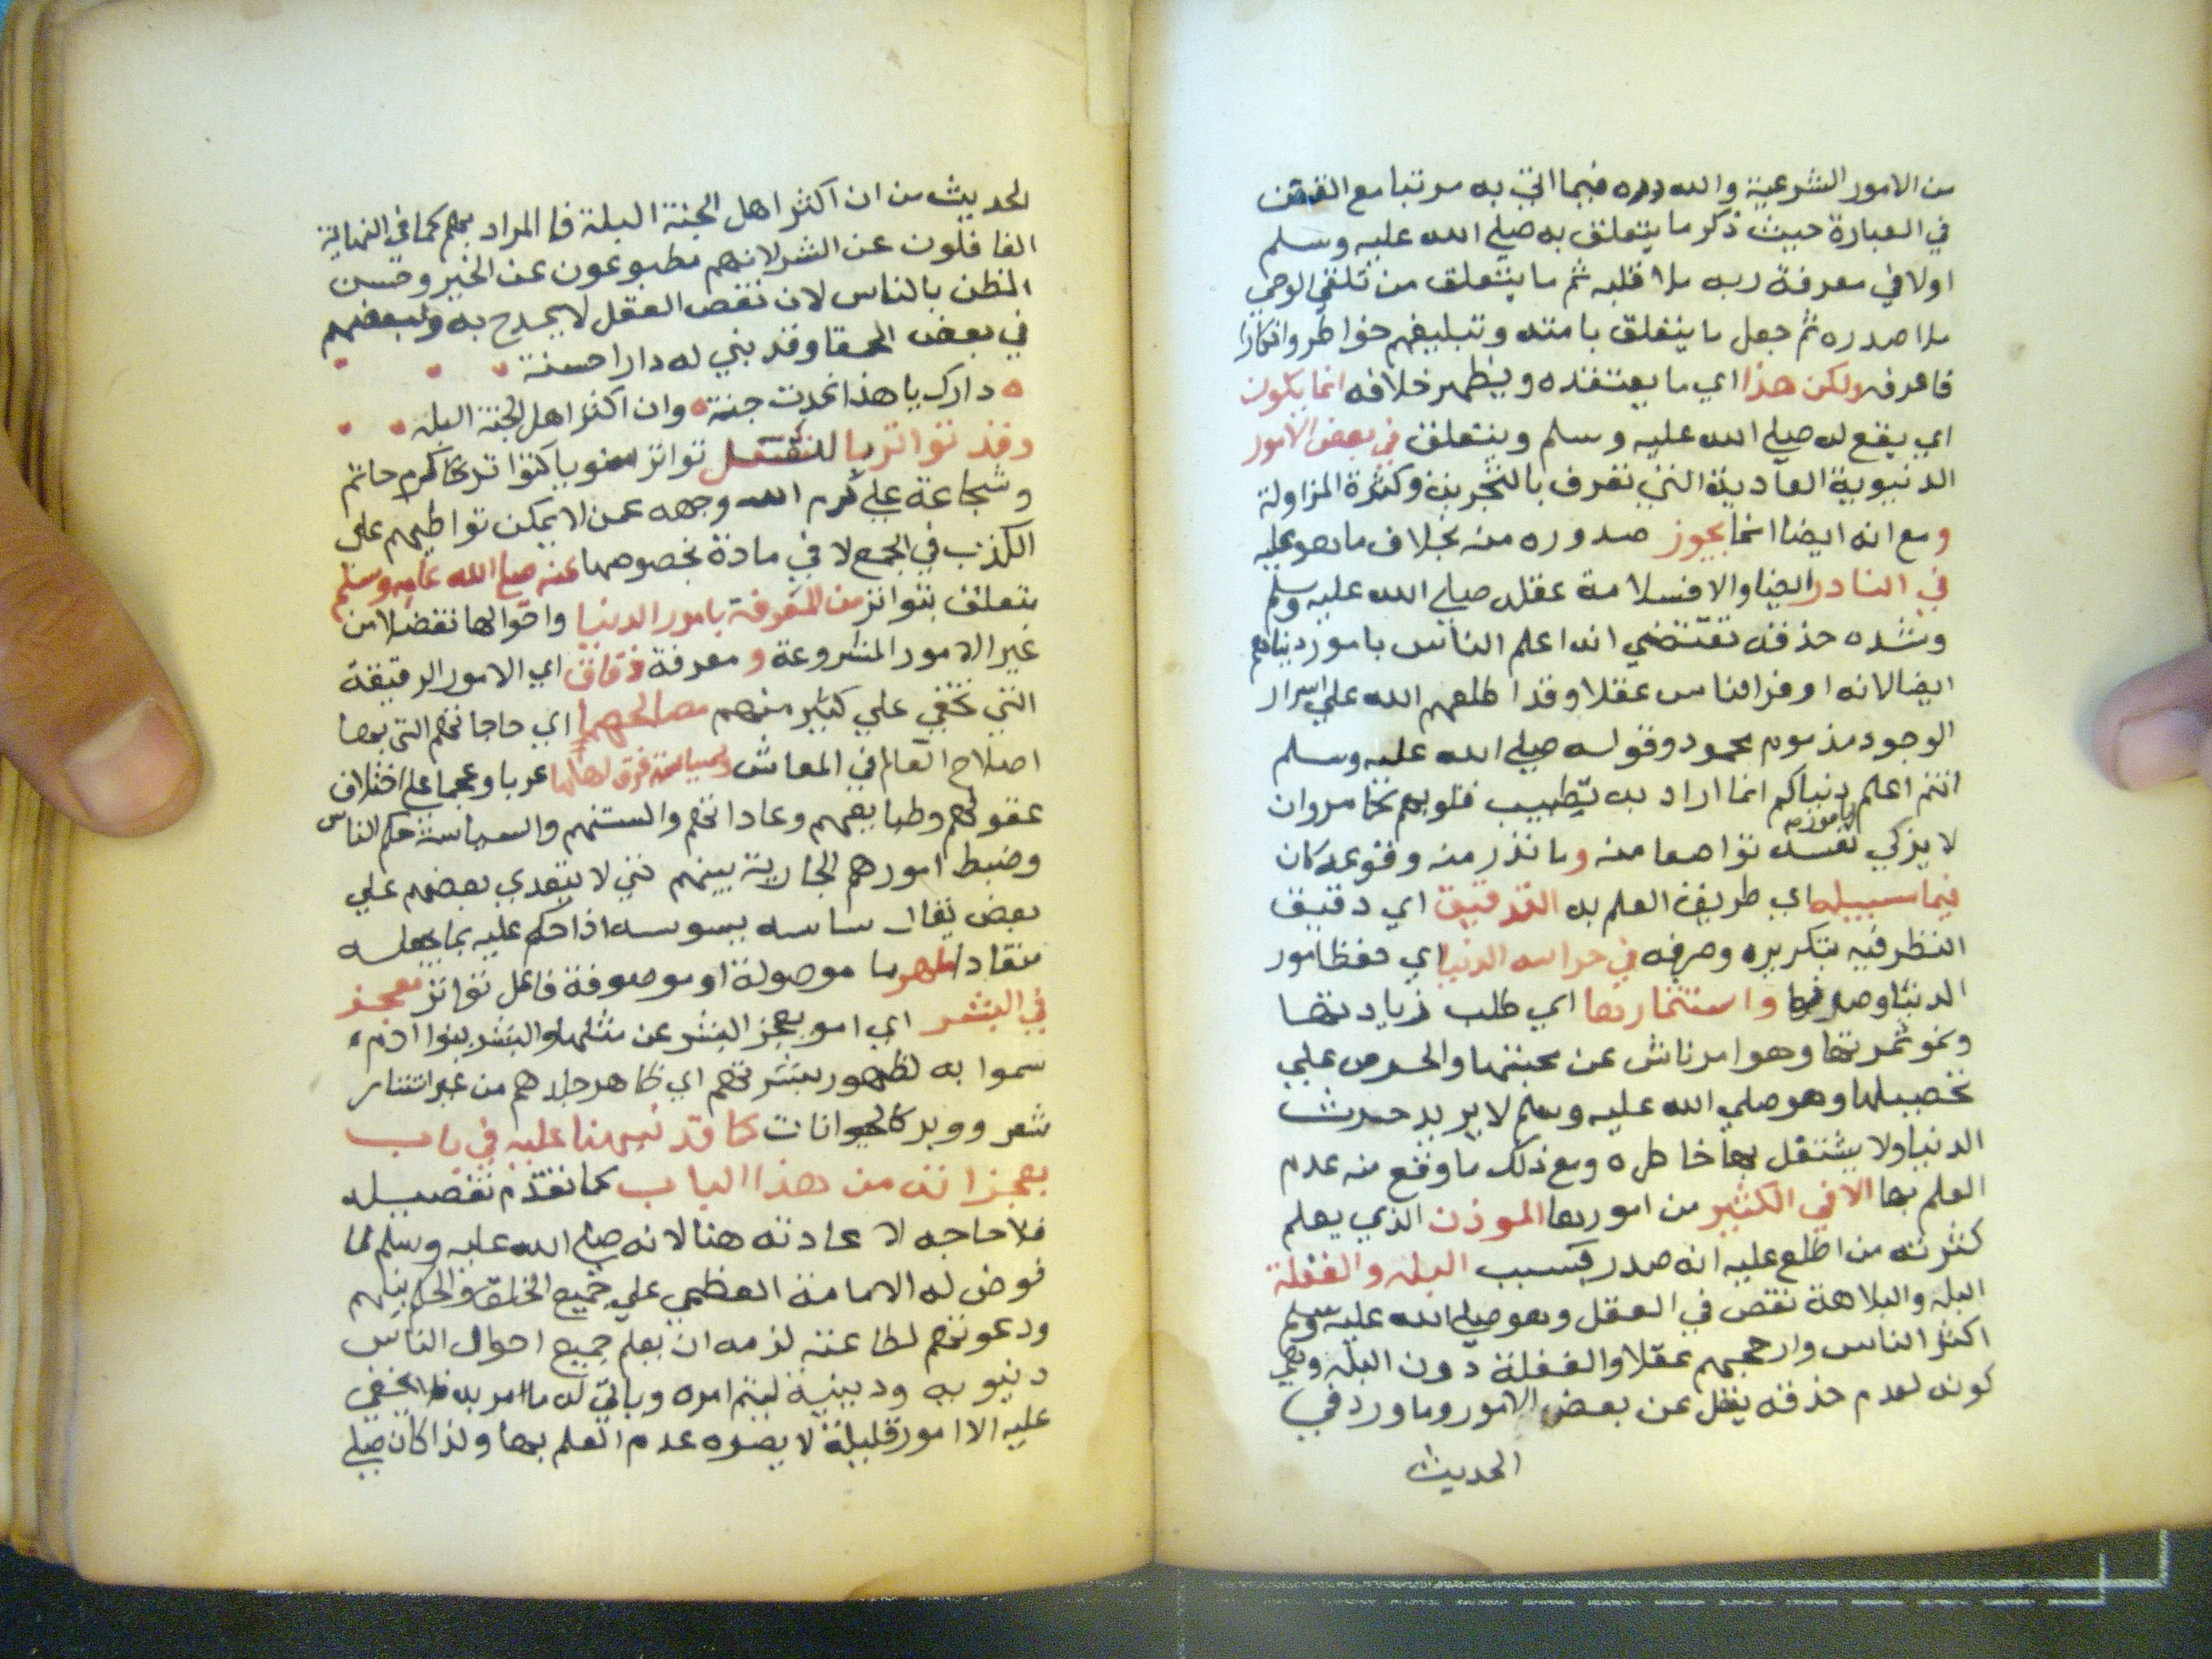 من الامور الشرعية والله دره فيما اتي به مرتبا مع التفنن
في العبارة حيث ذكر ما يتعلق به صلي الله عليه وسلم
اولا في معرفة ربه ملا قلبه ثم ما يتعلق من تلقي الوحي
ملا صدره ثم جعل ما يتعلق بامته وتبليغهم خواطر وافكارا
فاعرفه ولكن هذا اي ما يعتقده ويظهر خلافه انما يكون
اي يقع له صلي الله عليه وسلم ويتعلق في بعض الامور
الدنيوية العادية التي تعرف بالتجربة وكثرة المزاولة
ومع انه ايضا انما يجوز صدوره منه بخلاف ما هو عليه
في النادر ايضا والا فسلامة عقله صلي الله عليه وسلم
وشده حذقه تقتضي انه اعلم الناس بامور دنياهم
ايضا لانه اوفر الناس عقلا وقد اطلعهم الله علي اسرار
الوجود مذموم محمود وقوله صلي الله عليه وسلم
انتم اعلم بامور دنياكم انما اراد به تطييب قلوبهم كما مر وان
لا يزكي نفسه تواضعا منه وما نذر منه وقوعه كان
فيما سبيله اي طريق العلم به التدقيق اي دقيق
النظر فيه بتكريره وصرفه في حراسه الدنيا اي حفظ امور
الدنيا وصرفها واستثمارها اي طلب زيادتها
ونمو ثمرتها وهو امر ناش عن محبتها والحرص علي
تحصيلها وهو صلي الله عليه وسلم لا يريد حرث
الدنيا ولا يشتغل بها خاطره ومع ذلك ما وقع منه عدم
العلم بها الا في الكثير من امورها الموذن الذي يعلم
كثرته من اطلع عليه انه صدر بسبب البله والغفلة
البله والبلاهة نقص في العقل وهو صلي الله عليه وسلم
اكثر الناس وارجحهم عقلا والغفلة دون البله وهي
كونه لعدم حذقه يغفل عن بعض الامور وما ورد في
الحديث
الحديث من ان اكثر اهل الجنة البلة فالمراد بهم كما في النهاية
الغافلون عن الشر لانهم مطبوعون عن الخير وحسن
الظن بالناس لان نقص العقل لا يمدح به ولبعضهم
في بعض الحمقا وقد بني له دارا حسنة
دارك يا هذا غدت جنة وان اكثر اهل الجنة البله
وقد تواتر بالنقل تواتر معنويا كتواتر كرم حاتم
وشجاعة علي كرم الله وجهه عمن لا يمكن تواطيهم علي
الكذب في الجمع لا في مادة بخصوصها عنه صلي الله عليه وسلم
يتعلق بتواتر من المعرفة بامور الدنيا واحوالها تفضلا من
غير الامور المشروعة ومعرفة دقاق اي الامور الدقيقة
التي تخفي علي كثير منهم مصالحهما اي حاجاتهم التي بها
اصلاح العالم في المعاش وسياسة فرق اهلها عربا وعجما علي اختلاف
عقولهم وطبايعهم وعاداتهم والسنتهم والسياسة حكم الناس
وضبط امورهم الجارية بينهم حتي لا يتعدي بعضهم علي
بعض يقال ساسه يسوسه اذا حكم عليه بما يجعله
منقادا ما موصولة او موصوفة فاعل تواتر معجز
في البشر اي امر يعجز البشر عن مثلها والبشر بنوا ادم
سموا به لظهور بشرتهم اي ظاهر جلدهم من غير استتار
شعر ووبر كالحيوانات كما قد نبهنا عليه في باب
معجزاته من هذا الباب كما تقدم تفصيله
فلا حاجه لا عادته هنا لانه صلي الله عليه وسلم لما
فوض له الامامة العظمي علي جميع الخلق والحكم بينهم
ودعوتهم لطاعته لزمه ان يعلم جميع احوال الناس
دنيويه ودينية ليتم امره وياتي له ما امر به فلا يخفي
عليه الا امور قليلة لا يضره عدم العلم بها ولذا كان صلي